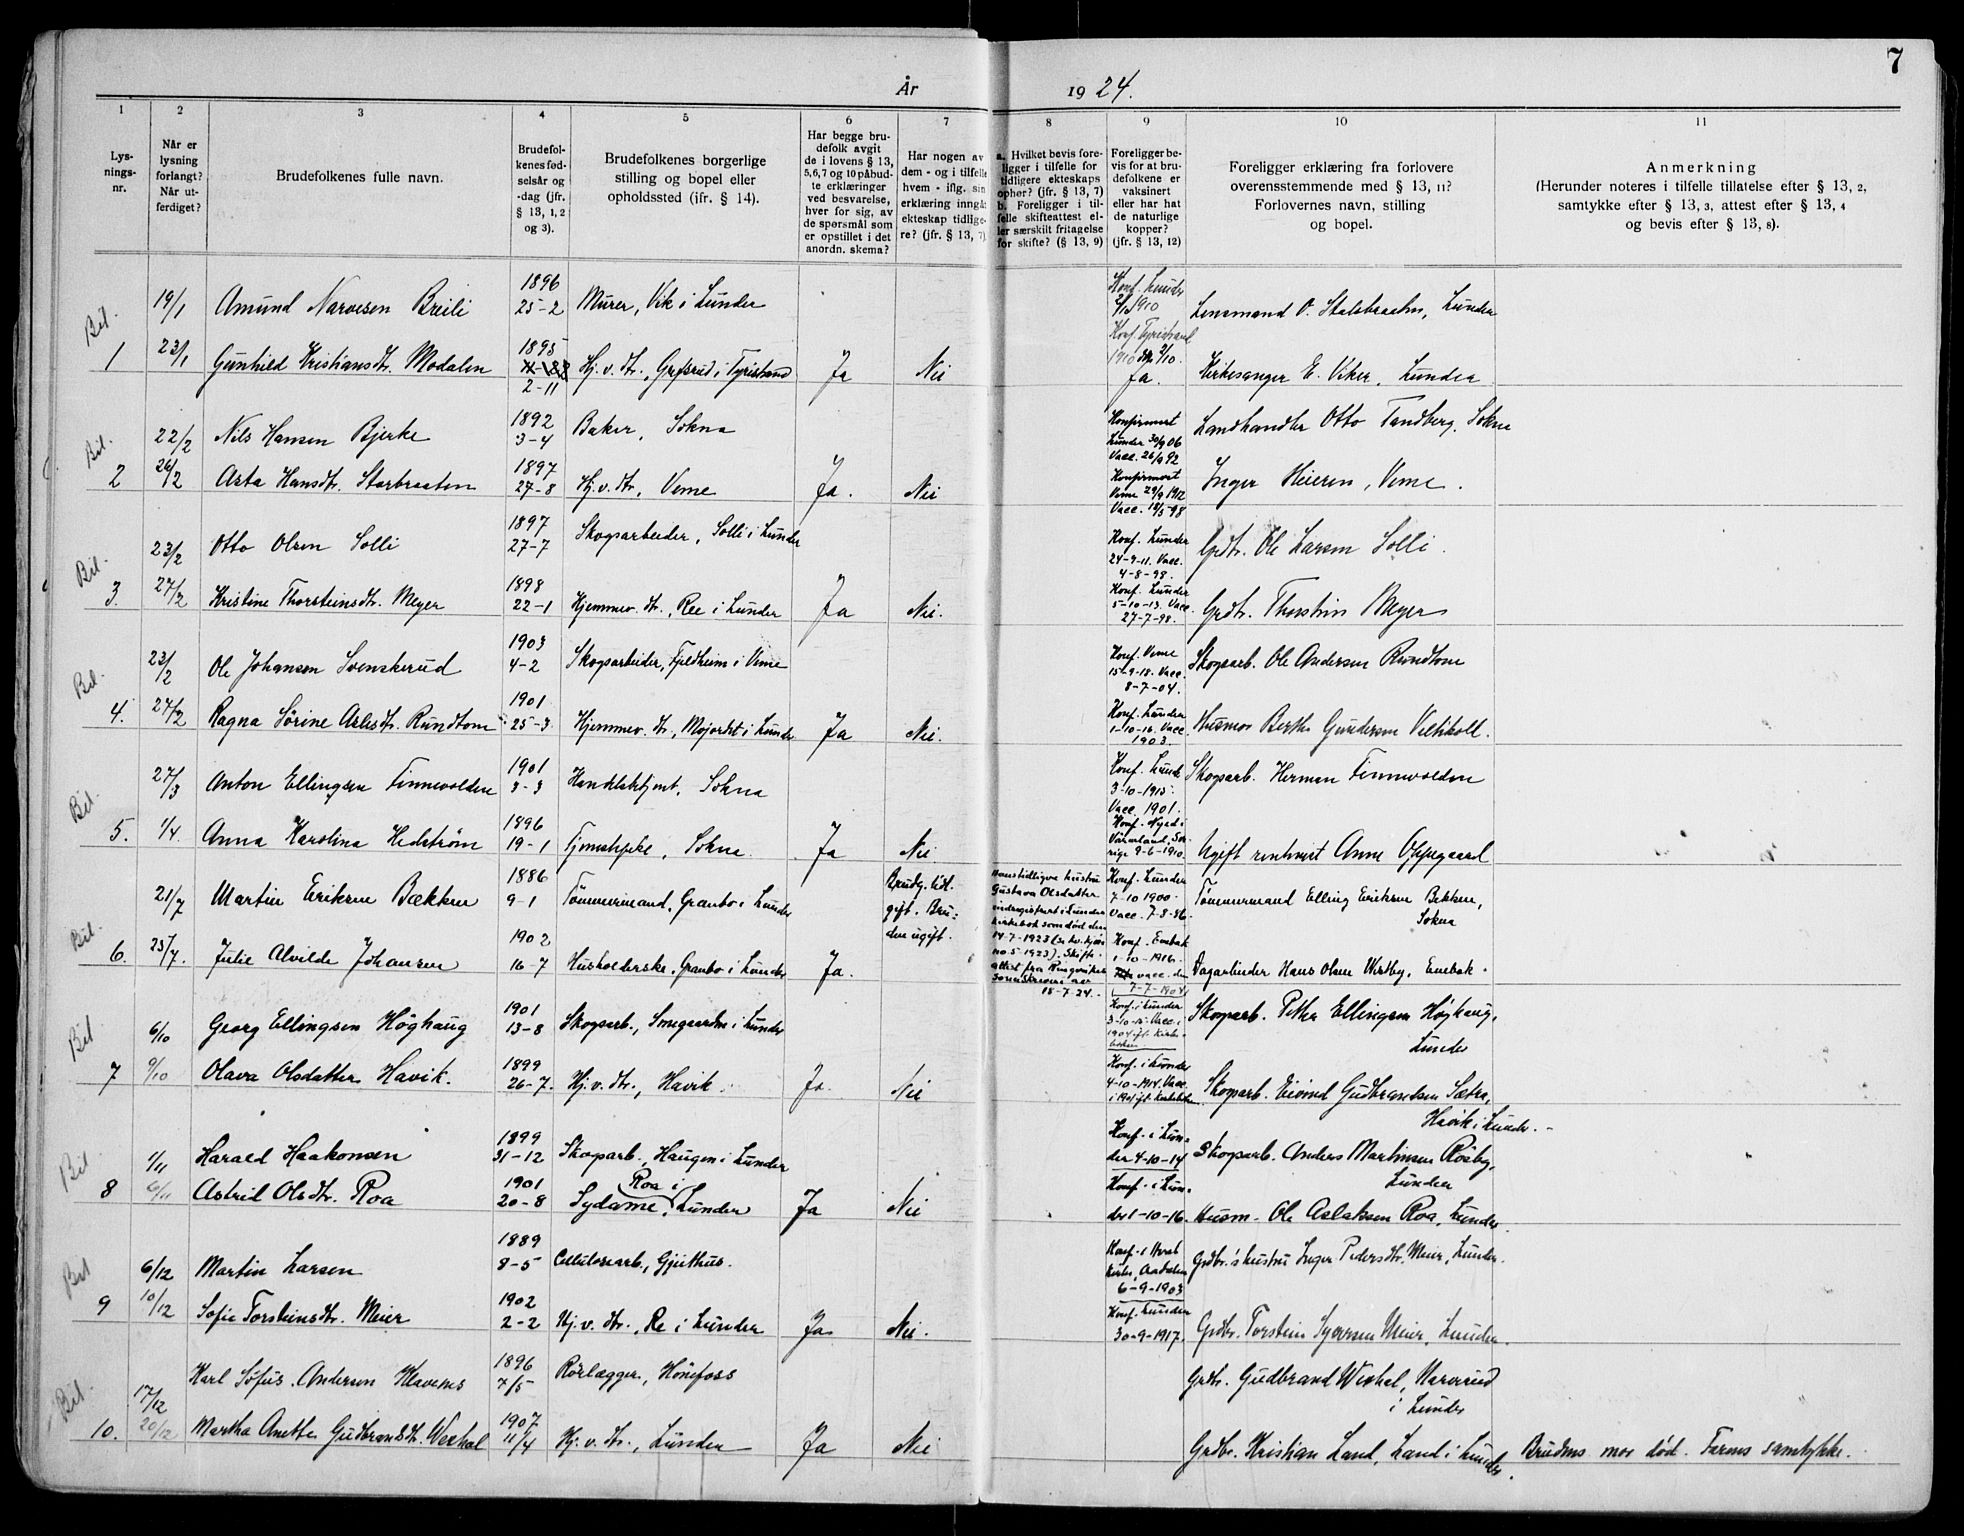 7
År 1924.
1 2 3 4 5 6 7 8 9 10 11
Lys-
nings-
nr.
Når er
lysning
forlangt?
Når ut-
ferdiget?
Brudefolkenes fulle navn.
Brudefol-
kenes fød-
selsår og
-dag (jfr.
§ 13, 1, 2
og 3).
Brudefolkenes borgerlige
stilling og bopel eller
opholdssted (ifr. § 14).
Har begge bru-
defolk avgit
de i lovens § 13,
5,6,7 og 10 påbud-
te erklæringer
ved besvarelse,
hver for sig, av
de spørsmål som
er opstillet i det
anordn. skema?
Har nogen av
dem - og i tilfelle
hvem - iflg. sin
erklæring inngåt
ekteskap tidlige-
re? (jfr. § 13, 7)
a. Hvilket bevis fore-
ligger i tilfelle for
tidligere ekteskaps
ophør? (jfr. § 13, 7)
b. Foreligger i til-
felle skifteattest el-
ler særskilt fritagelse
for skifte? (§ 13, 9)
Foreligger be-
vis for at bru-
defolkene er
vaksinert
eller har hat
de naturlige
kopper?
(jfr. § 13, 12)
Foreligger erklæring fra forlovere
overensstemmende med § 13, 11?
Forlovernes navn, stilling
og bopel.
Anmerkning
(Herunder noteres i tilfelle tillatelse efter § 13, 2,
samtykke efter § 13, 3, attest efter § 13, 4
og bevis efter § 13, 8).
Bil.
1
19/1 Amund Narvesen Breili 1896 25-2 Murer, Vik i Lunder Konf. Lunder 1910 Lensmand O. Stalsbraaten, Lunder
23/1 Gunhild Kristiansdtr. Modalen 1895 2-11 Hj.v.dtr., Grøsrud i Tyristrand Ja Nei Konf. Tyristrand 1910 Ja. Kirkesanger E. Viker, Lunder
Bil.
2
22/2 Nils Hansen Bjerke 1892 3-4 Baker, Sokna Konfirmert Lunder 30/9 06 Vacc. 26/9 92 Landhandler Otto Tandberg, Sokna
26/2 Asta Hansdtr. Storbraaten 1897 27-8 Hj.v.dtr, Veme Ja. Nei Konfirmert Veme 29/9 1912 Vacc. 18/5 98 Inger Heieren, Veme.
Bil.
3.
23/2 Otto Olsen Solli 1897 27-7 Skogsarbeider, Solli i Lunder Konf. Lunder 24-9-11. Vacc. 4-8-98. Grdbr. Ole Larsen Solli.
27/2 Kristine Thorsteinsdtr. Meyer 1898 22-1 Hjemmev. dtr., Ree i Lunder Ja Nei. Konf. Lunder 5-10-13. Vacc. 27-7-98. Grdbr. Thorstein Meyer
Bil.
4.
23/2 Ole Johansen Svenskerud 1903 4-2 Skogsarbeider, Fjeldheim i Veme Konf. Veme 15-9-18. Vacc. 8-7-04. Skogsarb. Ole Andersen Rundtom
27/2 Ragna Sørine Aslesdtr. Rundtom 1901 25-3 Hjemmev. dtr., Mojordet i Lunder Ja Nei. Konf. Lunder 1-10-16. Vacc. 1903. Husmor Berthe Gundersen Veltikoll.
Bil.
5.
27/3 Anton Ellingsen Finnevolden 1901 3-3 Handelsbtjent. Sokna Konf. Lunde 3-10-1915. Vacc. 1901. Skogsarb. Herman Finnevolden
1/4 Anna Karolina Hedström 1896 19-1 Tjenestepike, Sokna Ja Nei Konf. Nysd i Värmland, Sverige 9-6-1910. Ugift Anne Oppegaard
Bil.
6.
21/7 Martin Eriksen Bækken 1886 9-1 Tømmermand, Granbo i Lunder Brudg. tidl. gift. Bruden ugift. Hans tidligere hustru Gustava Olsdatter indregistrert i Lunder kirkebok som død den 14-7-1923 (se kv. kjøn no. 5-1923). Skifteattest fra Ringerikes sorenskriveri av 18-7-24. Konf. Lunder 7-10 1900. Vacc. 7-8-86. Tømmermand Elling Eriksen Bekken, Sokna
25/7. Julie Alvilde Johansen 1902 16-7 Husholderske, Granbo i Lunder Ja. Konf. Enebak 1-10-1916. vacc. den 7-7-1904. Dagarbeider Hans Olsen Westby, Enebak.
Bil
7
6/10 Georg Ellingsen Höghaug 1901 13-8 Skogsarb., Smegaarden i Lunder Konf. i Lunder 3-10-15. Vacc. i 1904 jfr. kirkeboken. Skogsarb. Pether Ellingsen Høghaug, Lunder
9/10 Olava Olsdatter Havik. 1899 26-7. Hj.v.dtr., Havik. Ja. Nei Konf. i Lunder 4-10-1914. Vacc. i 1901 jfr. kirkeboken Skogsarb. Eivind Gudbrandsen Sætra, Havik i Lunder.
Bil
8
1/11 Harald Haakonsen 1899 31-12 Skogsarb., Haugen i Lunder Konf. i Lunder 4-10-14 Skogsarb. Anders Martinsen Rosby, Lunder
6/11 Astrid Olsdtr. Roa 1901 20-8 Sydame, Roa i Lunder Ja Nei Konf. i Lunder 1-10-16. Husm. Ole Aslaksen Roa, Lunder.
Bil
9
6/12 Martin Larsen 1889 8-5 Cellulosearb., Gjuthus. Konf. i Hval kirke, Aadalen 6-9-1903 Grdbr.'s hustru Inger Pedersdtr. Meier, Lunder.
10/12 Sofie Torsteinsdtr. Meier 1902 2-2 Hj.v.dtr., Re i Lunder Ja Nei. Konf. Lunder 30-9-1917. Grdbr. Torstein Syversen Meier, Lunder.
Bil.
10.
17/12 Karl Sofus Andersen Klavenes 1896 7/5 Rörlægger, Hönefoss Grdbr. Gudbrand Wexhal, Narverud i Lunder
20/12 Martha Anette Gudbrandsdtr. Wexhal 1907 11/4 Hj.v.dtr., Lunder Ja Nei Grdbr. Kristian Land, Land i Lunder. Brudens mor død. Farens samtykke.